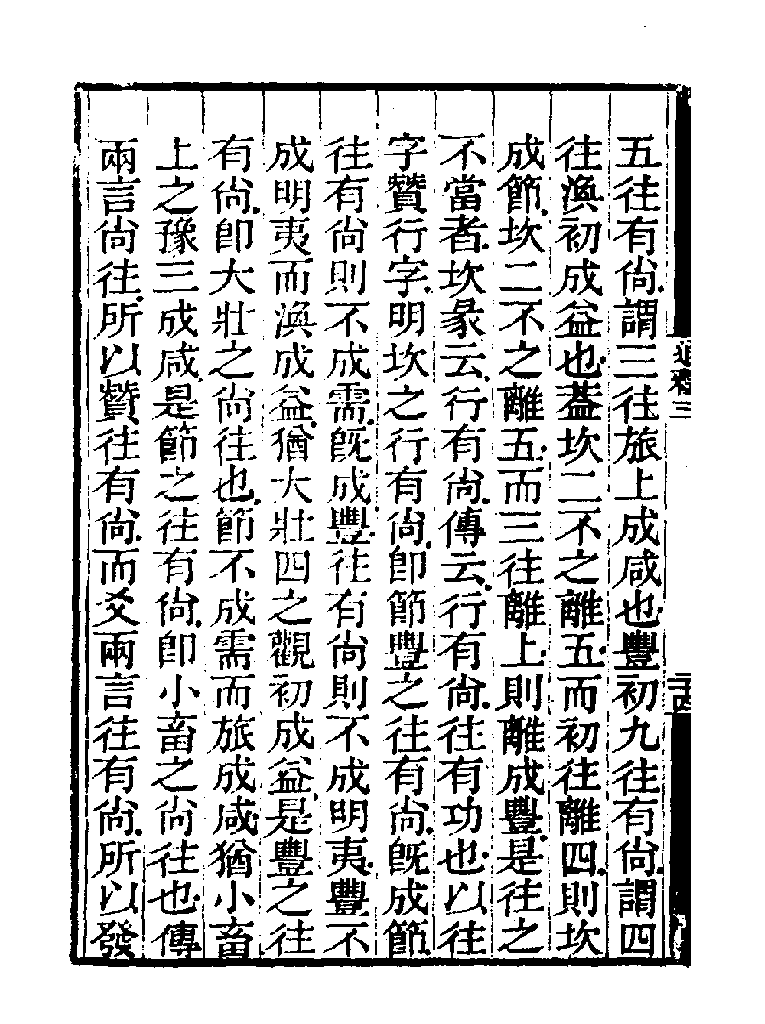 五往有尚謂三往旅上成咸也豐初九往有尚謂四
往渙初成益也蓋坎二不之離五而初往離四則坎
成節坎二不之離五而三往離上則離成豐是往之
不當者坎彖云行有尚傳云行有尚往有功也以往
字贊行字明坎之行有尚卽節豐之往有尚旣成節
往有尚則不成需旣成豐往有尚則不成明夷豐不
成明夷而渙成益猶大壯四之觀初成益是豐之往
有尚卽大壯之尚往也節不成需而旅成咸猶小畜
上之豫三成咸是節之往有尚卽小畜之尚往也傳
兩言尚往所以贊往有尚而爻兩言往有尚所以發
通釋三
二十四